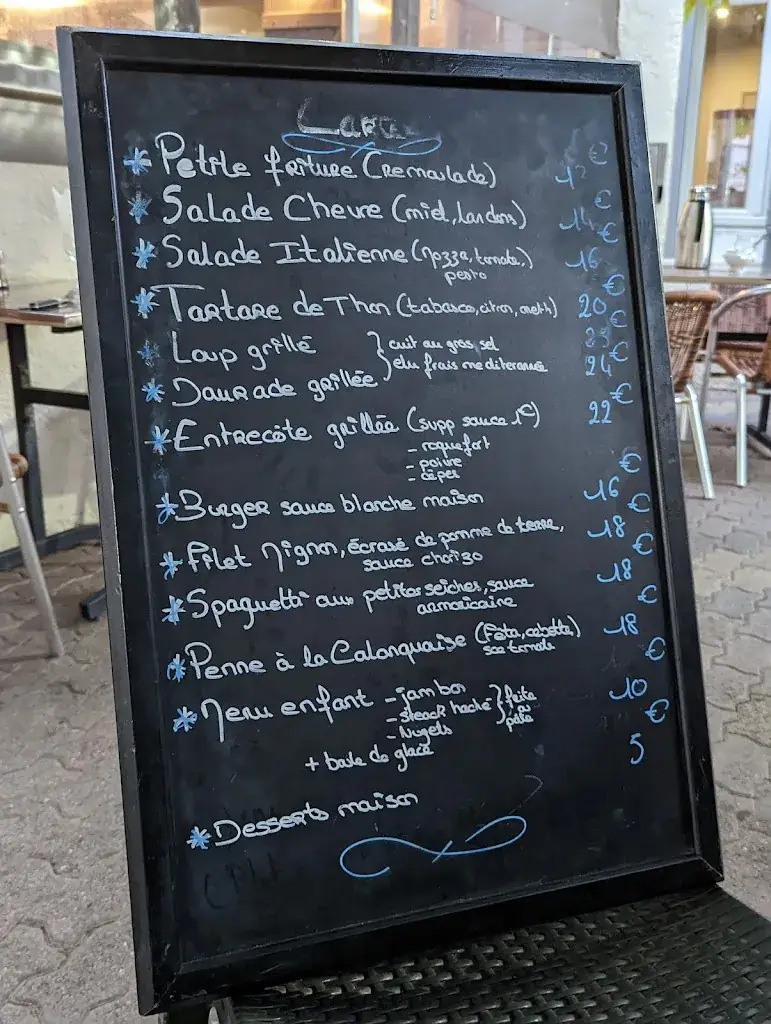 Carte
* Petite friture (remoulade) 12 €
* Salade Chevre (miel, lardons) 14 €
* Salade Italienne (mozza, tomate,) 16 €
pesto
* Tartare de Thon (tabasco, citron, aneth) 20 €
* Loup grillé } cuit au gros sel €
* Daurade grillée } elu frais mediteranné 24 €
* Entrecôte grillée (supp sauce 1€) 22 €
- roquefort
- poivre
- cèpes
* Burger sauce blanche maison 16 €
* Filet Mignon, écrasé de pomme de terre, 18 €
sauce chorizo
* Spaguetti aux petites seiches, sauce 18 €
armoricaine
* Penne à la Calanquaise (Féta, cebette) 18 €
sce tomate
* Menu enfant - jambon } frite 10 €
- steack haché } ou
- Nugets } pate
+ boule de glace
* Desserts maison 5 €